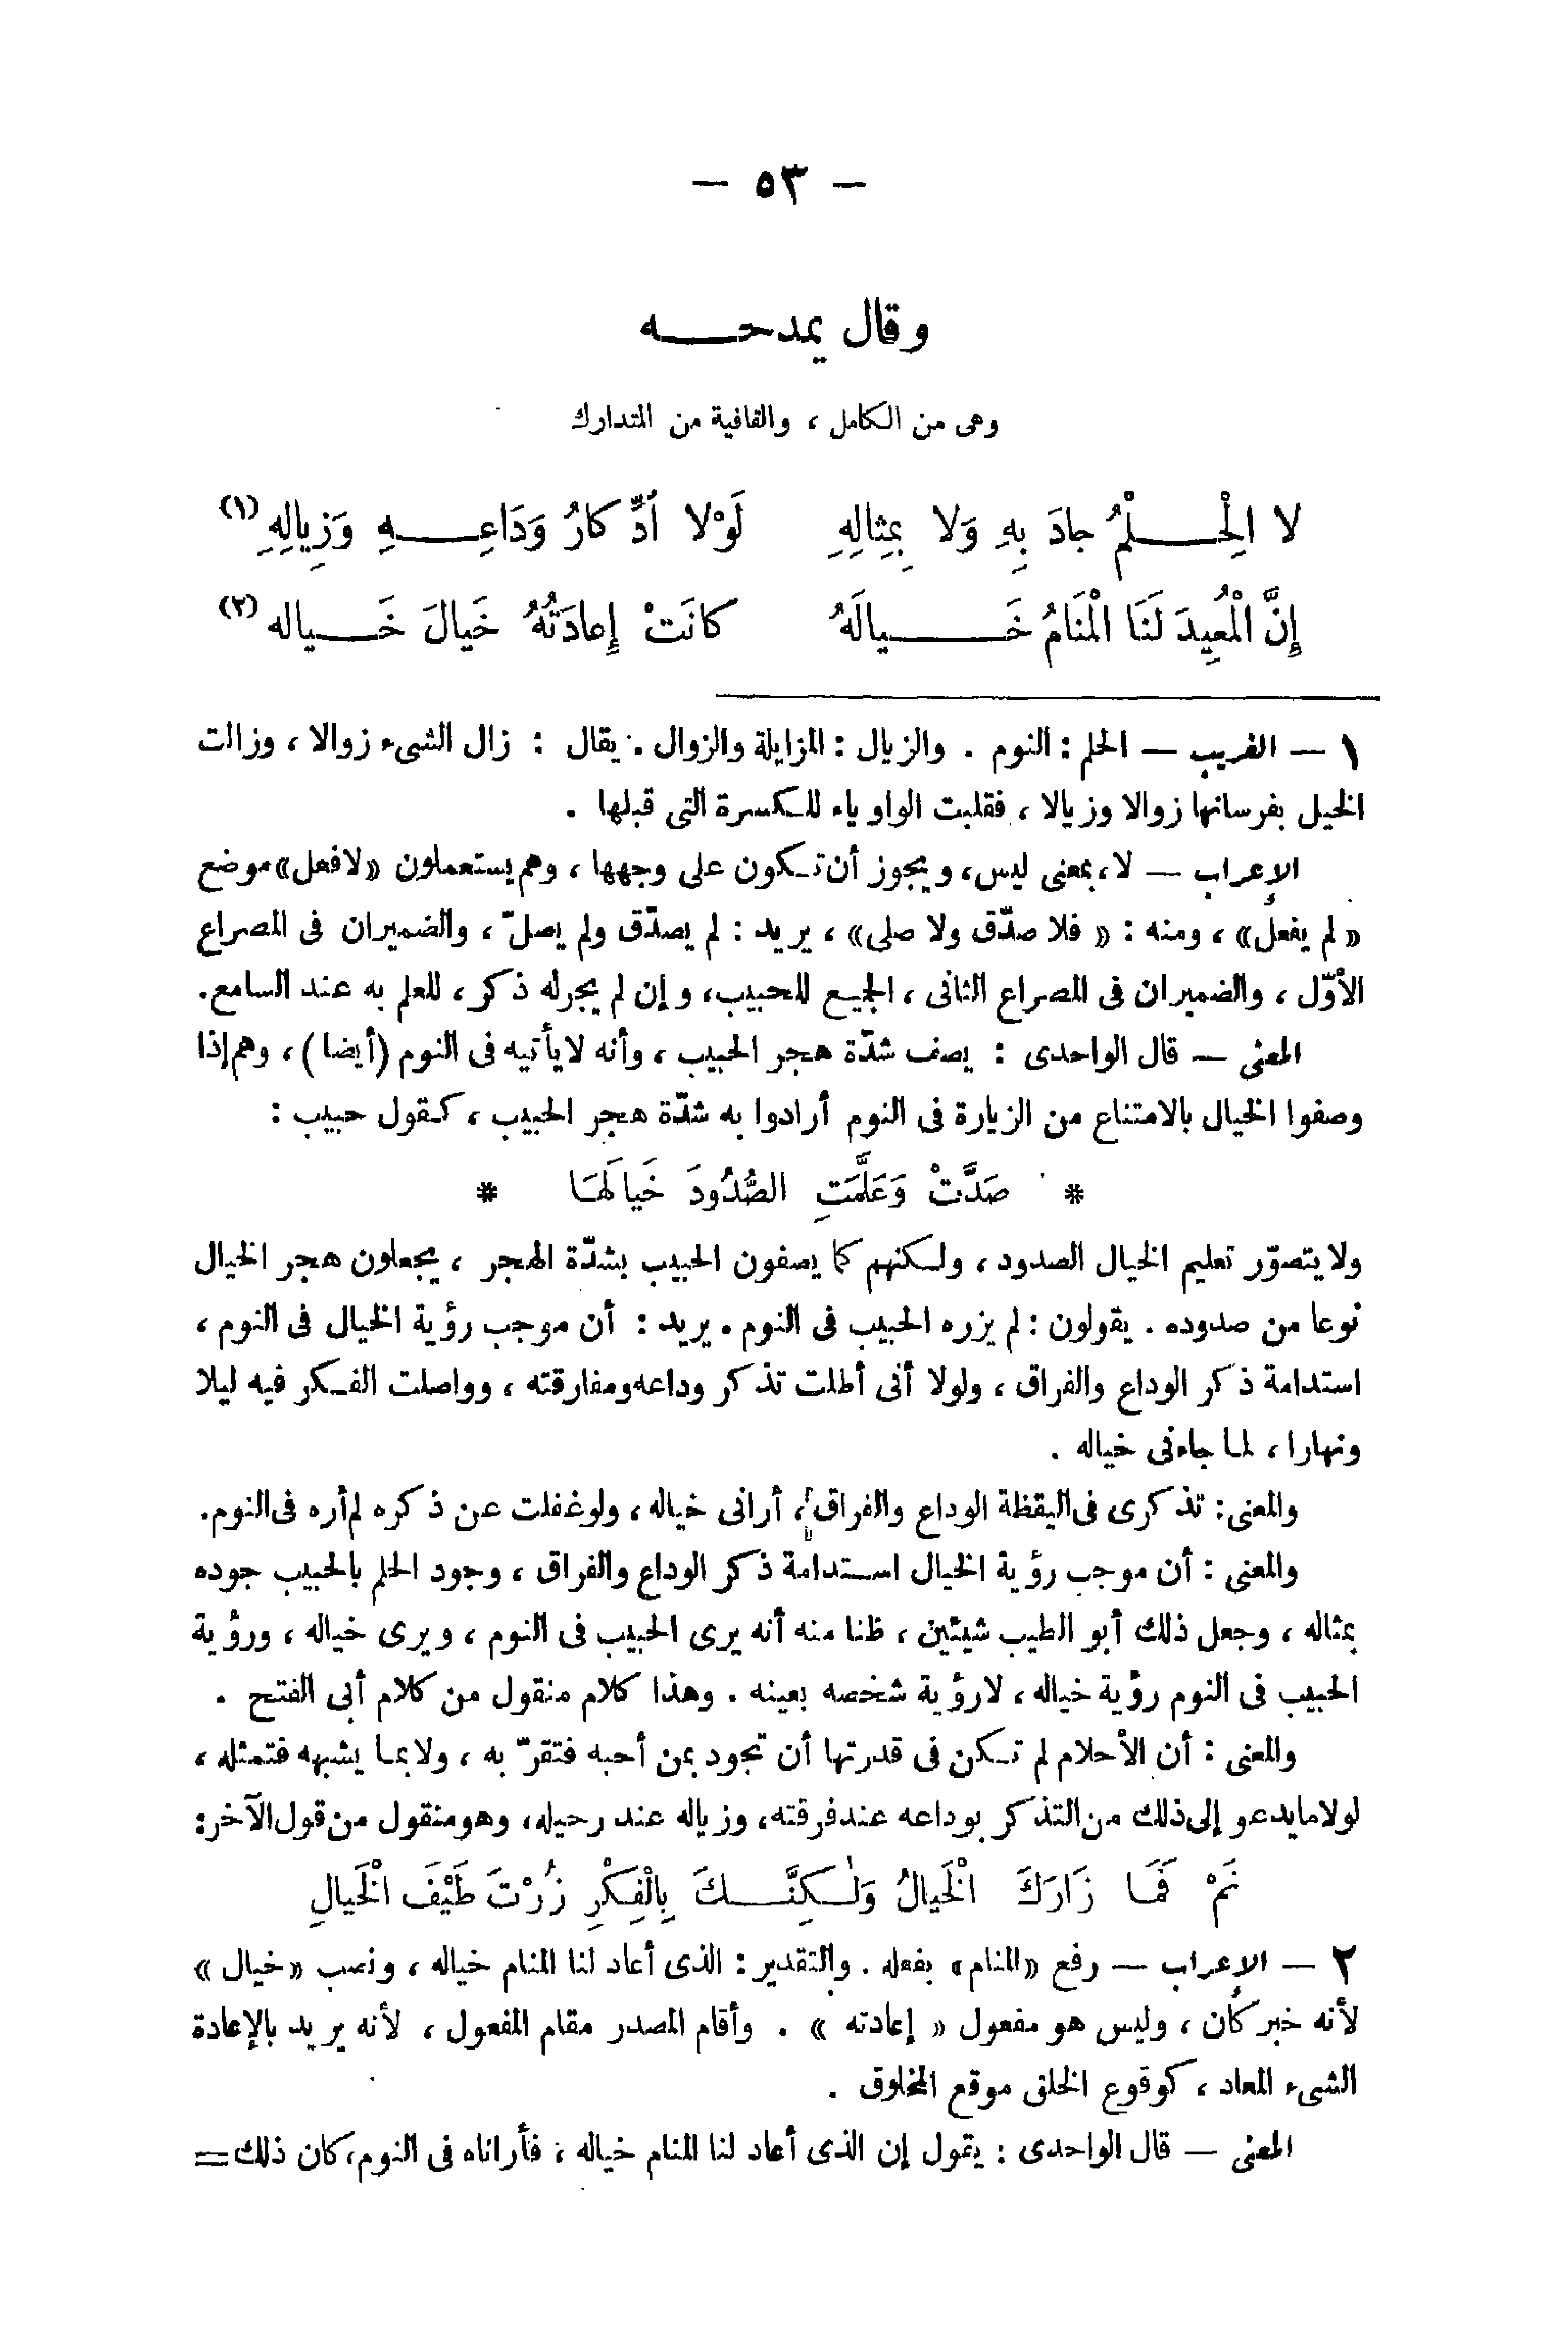 — ٥٣ —
وقال يمدحه
وهى من الكامل ، والقافية من المتدارك
لا الحِلْمُ جادَ بِهِ وَلا بِمِثالِهِ لَوْلا أدِّكارُ وَدَاعِهِ وَزِيالِهِ (١)
إنَّ الْمُعِيدَ لَنَا الْمَنَامُ خَيالَهُ كانَتْ إعادَتُهُ خَيالَ خَياله (٢)
١ — الغريب — الحلم : النوم . والزيال : المزايلة والزوال . يقال : زال الشىء زوالا ، وزالت
الخيل بفرسانها زوالا وزيالا ، فقلبت الواو ياء للكسرة التى قبلها .
الإعراب — لا، بمعنى ليس، ويجوز أن تكون على وجهها ، وهم يستعملون «لا فعل» موضع
« لم يفعل» ، ومنه : « فلا صدّق ولا صلى» ، يريد : لم يصدّق ولم يصلّ ، والضميران فى المصراع
الأوّل ، والضميران فى المصراع الثانى ، الجميع للحبيب، وإن لم يجر له ذكر ، للعلم به عند السامع.
المعنى — قال الواحدى : يصف شدّة هجر الحبيب ، وأنه لا يأتيه فى النوم (أيضا) ، وهم إذا
وصفوا الخيال بالامتناع من الزيارة فى النوم أرادوا به شدّة هجر الحبيب ، كقول حبيب :
* صَدَّتْ وَعَلَّمَتِ الصُّدُودَ خَيالَهَا *
ولا يتصوّر تعليم الخيال الصدود ، ولكنهم كما يصفون الحبيب بشدّة الهجر ، يجعلون هجر الخيال
نوعا من صدوده . يقولون : لم يزره الحبيب فى النوم . يريد : أن موجب رؤية الخيال فى النوم ،
استدامة ذكر الوداع والفراق ، ولولا أنى أطلت تذكر وداعه ومفارقته ، وواصلت الفكر فيه ليلا
ونهارا ، لما جاءنى خياله .
والمعنى : تذكرى فى اليقظة الوداع والفراق ، أرانى خياله ، ولو غفلت عن ذكره لم أره فى النوم.
والمعنى : أن موجب رؤية الخيال استدامة ذكر الوداع والفراق ، وجود الحلم بالحبيب جوده
بمثاله ، وجعل ذلك أبو الطيب شيئين ، ظنا منه أنه يرى الحبيب فى النوم ، ويرى خياله ، ورؤية
الحبيب فى النوم رؤية خياله ، لا رؤية شخصه بعينه . وهذا كلام منقول من كلام أبى الفتح .
والمعنى : أن الأحلام لم تكن فى قدرتها أن تجود بمن أحبه فتقرّ به ، ولا بما يشبهه فتمثله ،
لولا ما يدعو إلى ذلك من التذكر بوداعه عند فرقته، وزياله عند رحيله، وهو منقول من قول الآخر:
نَمْ فَمَا زَارَكَ الْخَيالُ وَلٰكِنَّكَ بِالْفِكْرِ زُرْتَ طَيْفَ الْخَيالِ
٢ — الإعراب — رفع «المنام» بفعله . والتقدير : الذى أعاد لنا المنام خياله ، ونصب «خيال»
لأنه خبر كان ، وليس هو مفعول « إعادته » . وأقام المصدر مقام المفعول ، لأنه يريد بالإعادة
الشىء المعاد ، كوقوع الخلق موقع المخلوق .
المعنى — قال الواحدى : يقول إن الذى أعاد لنا المنام خياله ، فأراناه فى النوم، كان ذلك =